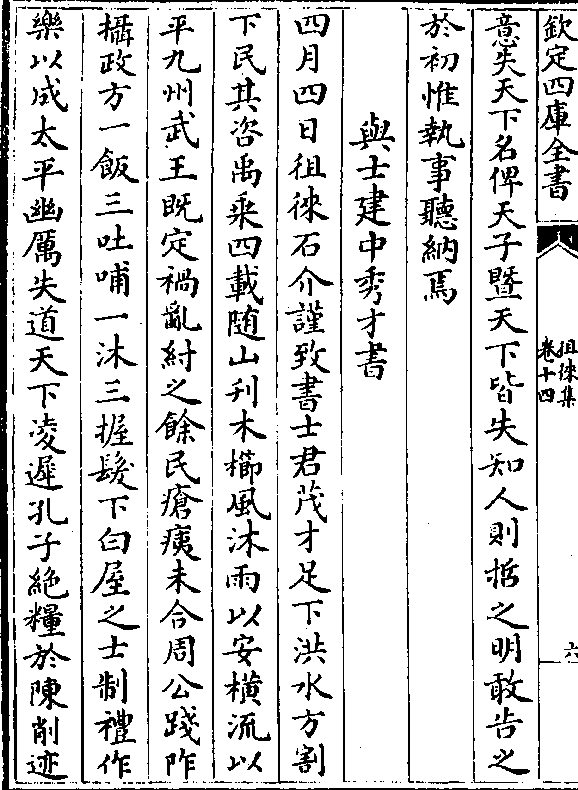 欽定四庫全書
徂徠集
卷十四
六
意失天下名俾天子暨天下皆失知人則哲之明敢告之
於初惟執事聽納焉
與士建中秀才書
四月四日徂徠石介謹致書士君茂才足下洪水方割
下民其咨禹乘四載随山刋木櫛風沐雨以安橫流以
平九州武王既定禍亂紂之餘民瘡痍未合周公踐阼
攝政方一飯三吐哺一沐三握髮下白屋之士制禮作
樂以成太平幽厲失道天下凌遲孔子絶糧於陳削迹